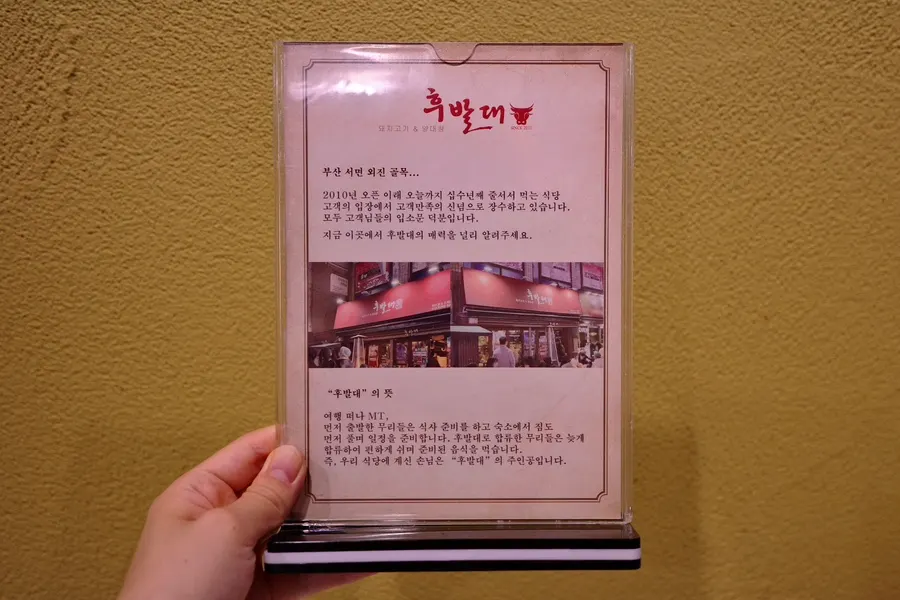 후발대
돼지고기 & 양대창
부산 서면 외진 골목...
2010년 오픈 이래 오늘까지 십수년째 줄서서 먹는 식당
고객의 입장에서 고객만족의 신념으로 장수하고 있습니다.
모두 고객님들의 입소문 덕분입니다.
지금 이곳에서 후발대의 매력을 널리 알려주세요.
후발대
후발대
후발대
"후발대"의 뜻
여행 떠나 MT,
먼저 출발한 무리들은 식사 준비를 하고 숙소에서 짐도
먼저 풀며 일정을 준비합니다. 후발대로 합류한 무리들은 늦게
합류하여 편하게 쉬며 준비된 음식을 먹습니다.
즉, 우리 식당에 계신 손님은 "후발대"의 주인공입니다.